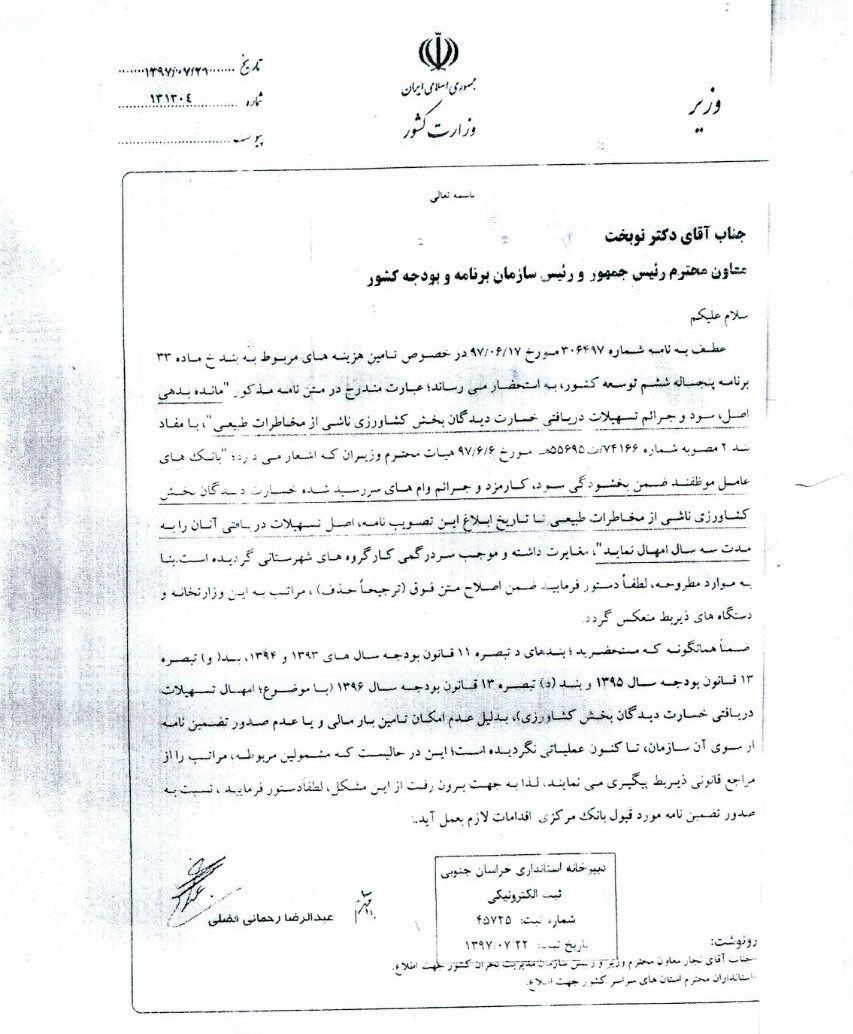 تاریخ ۱۳۹۷/۰۷/۲۱
شماره ۱۳۱۳۰٤
پیوست
جمهوری اسلامی ایران
وزارت کشور
وزیر
باسمه تعالی
جناب آقای دکتر نوبخت
معاون محترم رئیس جمهور و رئیس سازمان برنامه و بودجه کشور
سلام علیکم
عطف به نامه شماره ۳۰۶۴۹۷ مورخ ۹۷/۰۶/۱۷ در خصوص تامین هزینه های مربوط به بند خ ماده ۳۳
برنامه پنجساله ششم توسعه کشور، به استحضار می رساند؛ عبارت مندرج در متن نامه مذکور "مانده بدهی
اصل، سود و جرائم تسهیلات دریافتی خسارت دیدگان بخش کشاورزی ناشی از مخاطرات طبیعی"، با مفاد
بند ۲ مصوبه شماره ۷۴۱۶۶/ت۵۵۶۹۵هـ مورخ ۹۷/۶/۶ هیات محترم وزیران که اشعار می دارد؛ "بانک های
عامل موظفند ضمن بخشودگی سود، کارمزد و جرائم وام های سررسید شده خسارت دیدگان بخش
کشاورزی ناشی از مخاطرات طبیعی تا تاریخ ابلاغ این تصویب نامه، اصل تسهیلات دریافتی آنان را به
مدت سه سال امهال نماید"، مغایرت داشته و موجب سردرگمی کارگروه های شهرستانی گردیده است.بنا
به موارد مطروحه، لطفاً دستور فرمایید ضمن اصلاح متن فوق (ترجیحاً حذف)، مراتب به این وزارتخانه و
دستگاه های ذیربط منعکس گردد.
ضمناً همانگونه که مستحضرید؛ بندهای د تبصره ۱۱ قانون بودجه سال های ۱۳۹۳ و ۱۳۹۴، بند( و) تبصره
۱۳ قانون بودجه سال ۱۳۹۵ و بند (د) تبصره ۱۳ قانون بودجه سال ۱۳۹۶ (با موضوع؛ امهال تسهیلات
دریافتی خسارت دیدگان بخش کشاورزی)، بدلیل عدم امکان تامین بار مالی و یا عدم صدور تضمین نامه
از سوی آن سازمان، تا کنون عملیاتی نگردیده است؛ این در حالیست که مشمولین مربوطه، مراتب را از
مراجع قانونی ذیربط پیگیری می نمایند، لذا به جهت برون رفت از این مشکل، لطفاًدستور فرمایید ، نسبت به
صدور تضمن نامه مورد قبول بانک مرکزی اقدامات لازم بعمل آید.
عبدالرضا رحمانی فضلی
دبیرخانه استانداری خراسان جنوبی
ثبت الکترونیکی
شماره ثبت: ۴۵۷۲۵
تاریخ ثبت: ۱۳۹۷.۰۷.۲۲
رونوشت:
جناب آقای نجار معاون محترم وزیر و رئیس سازمان مدیریت بحران کشور جهت اطلاع.
استانداران محترم استان های سراسر کشور جهت اطلاع.